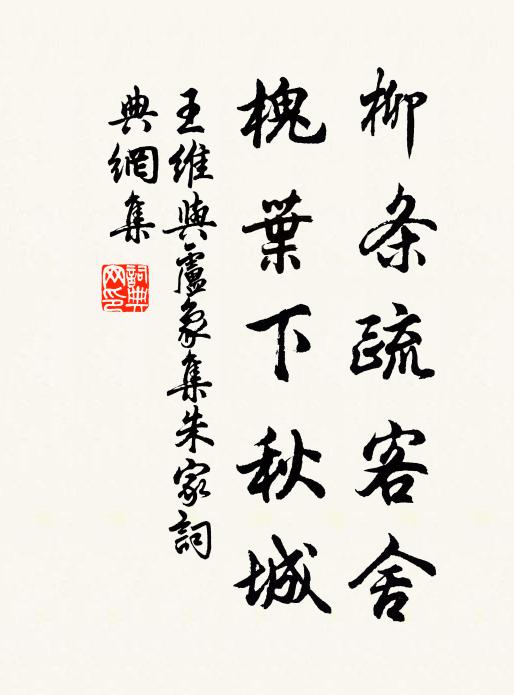 柳条疏客舍
槐葉下秋城
王維與盧象集朱家詞
典網集
詞典网印